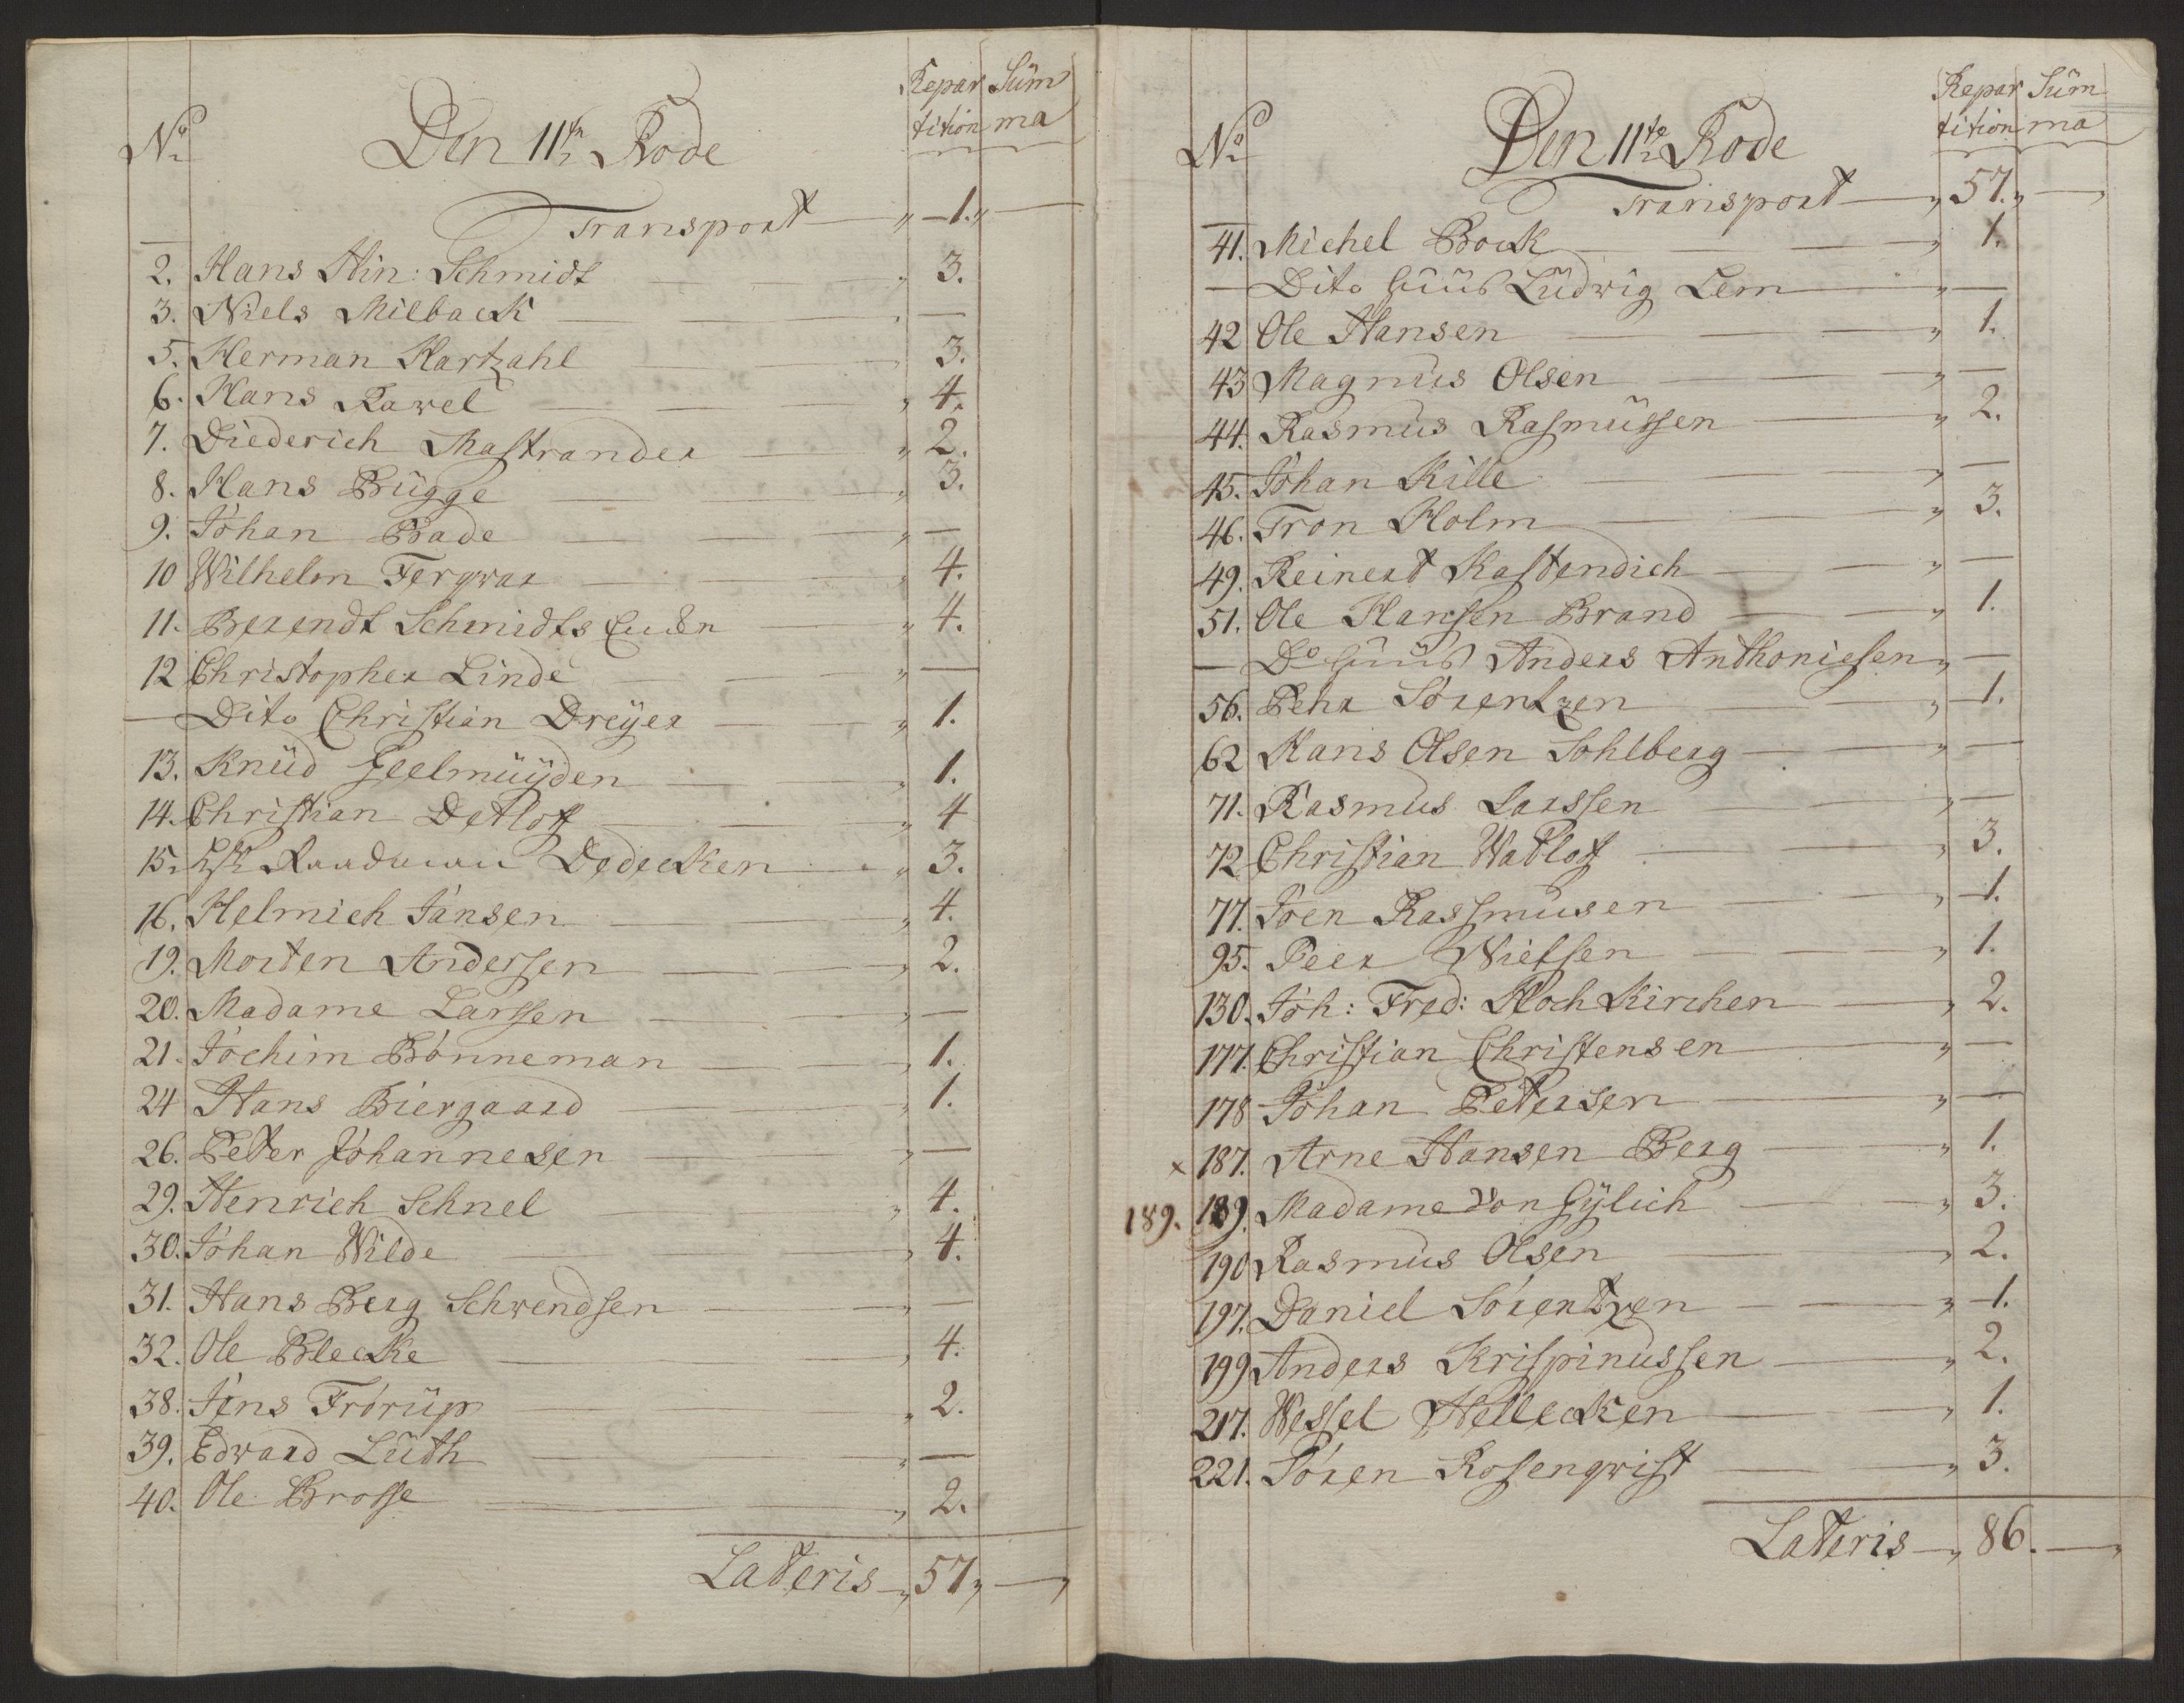 No Den 11te Rode Repartition Sümma
Transport — „ 1. „ —
2. Hans Hin: Schmidt — „ 3.
3. Niels Milback — „ —
5. Herman Hartzahl — „ 3.
6. Hans Rawel — „ 4.
7. Diederich Mastrander — „ 2.
8. Hans Bügge — „ 3.
9. Johan Bade — „ —
10 Wilhelm Ferqvar — „ 4.
11. Berendt Schmidts — „ 4.
12 Christopher Linde — „ —
— Dito Christian Dreyer — „ 1.
13. Knüd Geelmüÿden — „ 1.
14. Christian Detlof — „ 4
15. Raadman Dedecken — „ 3.
16. Helmich Jansen — „ 4.
19. Morten Anderssen — „ 2.
20. Madame Larssen — „ —
21. Jochim Bónneman — „ 1.
24 Hans Biergaard — „ 1.
26. Petter Johannesen — „ —
29. Henrich Schnel — „ 4.
30. Johan Wilde — „ 4.
31. Hans Berg Schwendsen — „ —
32. Ole Blecke — „ 4.
38. Jens Frórüp — „ 2.
39. Edward Lüth — „ —
40. Ole Brosse — „ 2.
Lateris — „ 57 „ — „
No Den 11te Rode Repartition Sümma
Transport — „ 57. „ — „
41. Michel Bock — „ 1.
— Dito Hüüs Lüdwig Lem — „ —
42 Ole Hansen — „ 1.
43 Magnus Olsen — „ —
44. Rasmus Rasmüssen — „ 2.
45. Johan Kille — „ —
46. Tron Holm — „ 3.
49. Reinert Kastendich — „ —
51. Ole Hansen Brand — „ 1.
— Do Hüüs Anders Anthoniesen „ —
56. Pehr Sórentzen — „ 1.
62 Hans Olsen Sohlberg — „ —
71. Rasmus Larssen — „ —
72 Christian Watlof — „ 3.
77. Joen Rassmusen — „ 1.
95. Peer Nielsen — „ 1.
130. Joh: Fred: Hoch Kirchen — „ 2.
177. Christian Christensen — „ —
178 Johan Petersen — „ —
x 187. Arne Hansen Berg — „ 1.
189. 189. Madame von Gÿlich — „ 3.
190 Rasmus Olsen — „ 2.
197. Daniel Sórentzen — „ 1.
199 Anders Krispinussen — „ 2.
217. Wessel Hellecken — „ 1.
221. Sóren Rosenqvist — „ 3.
Lateris — „ 86. — „